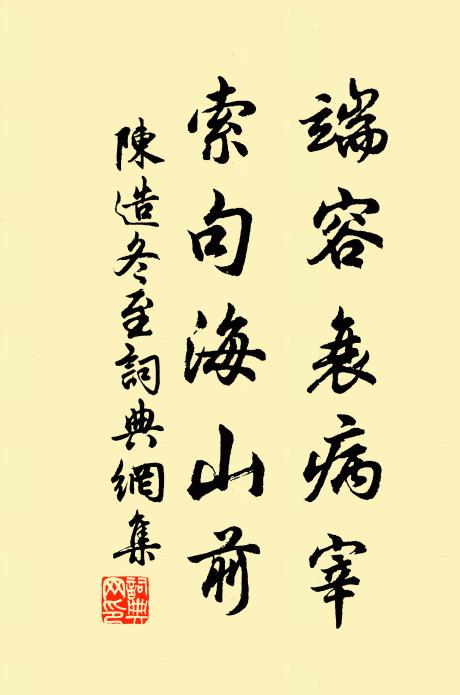 端容衰病宰
索句海山前
陳造冬至詞典網集
詞典網印